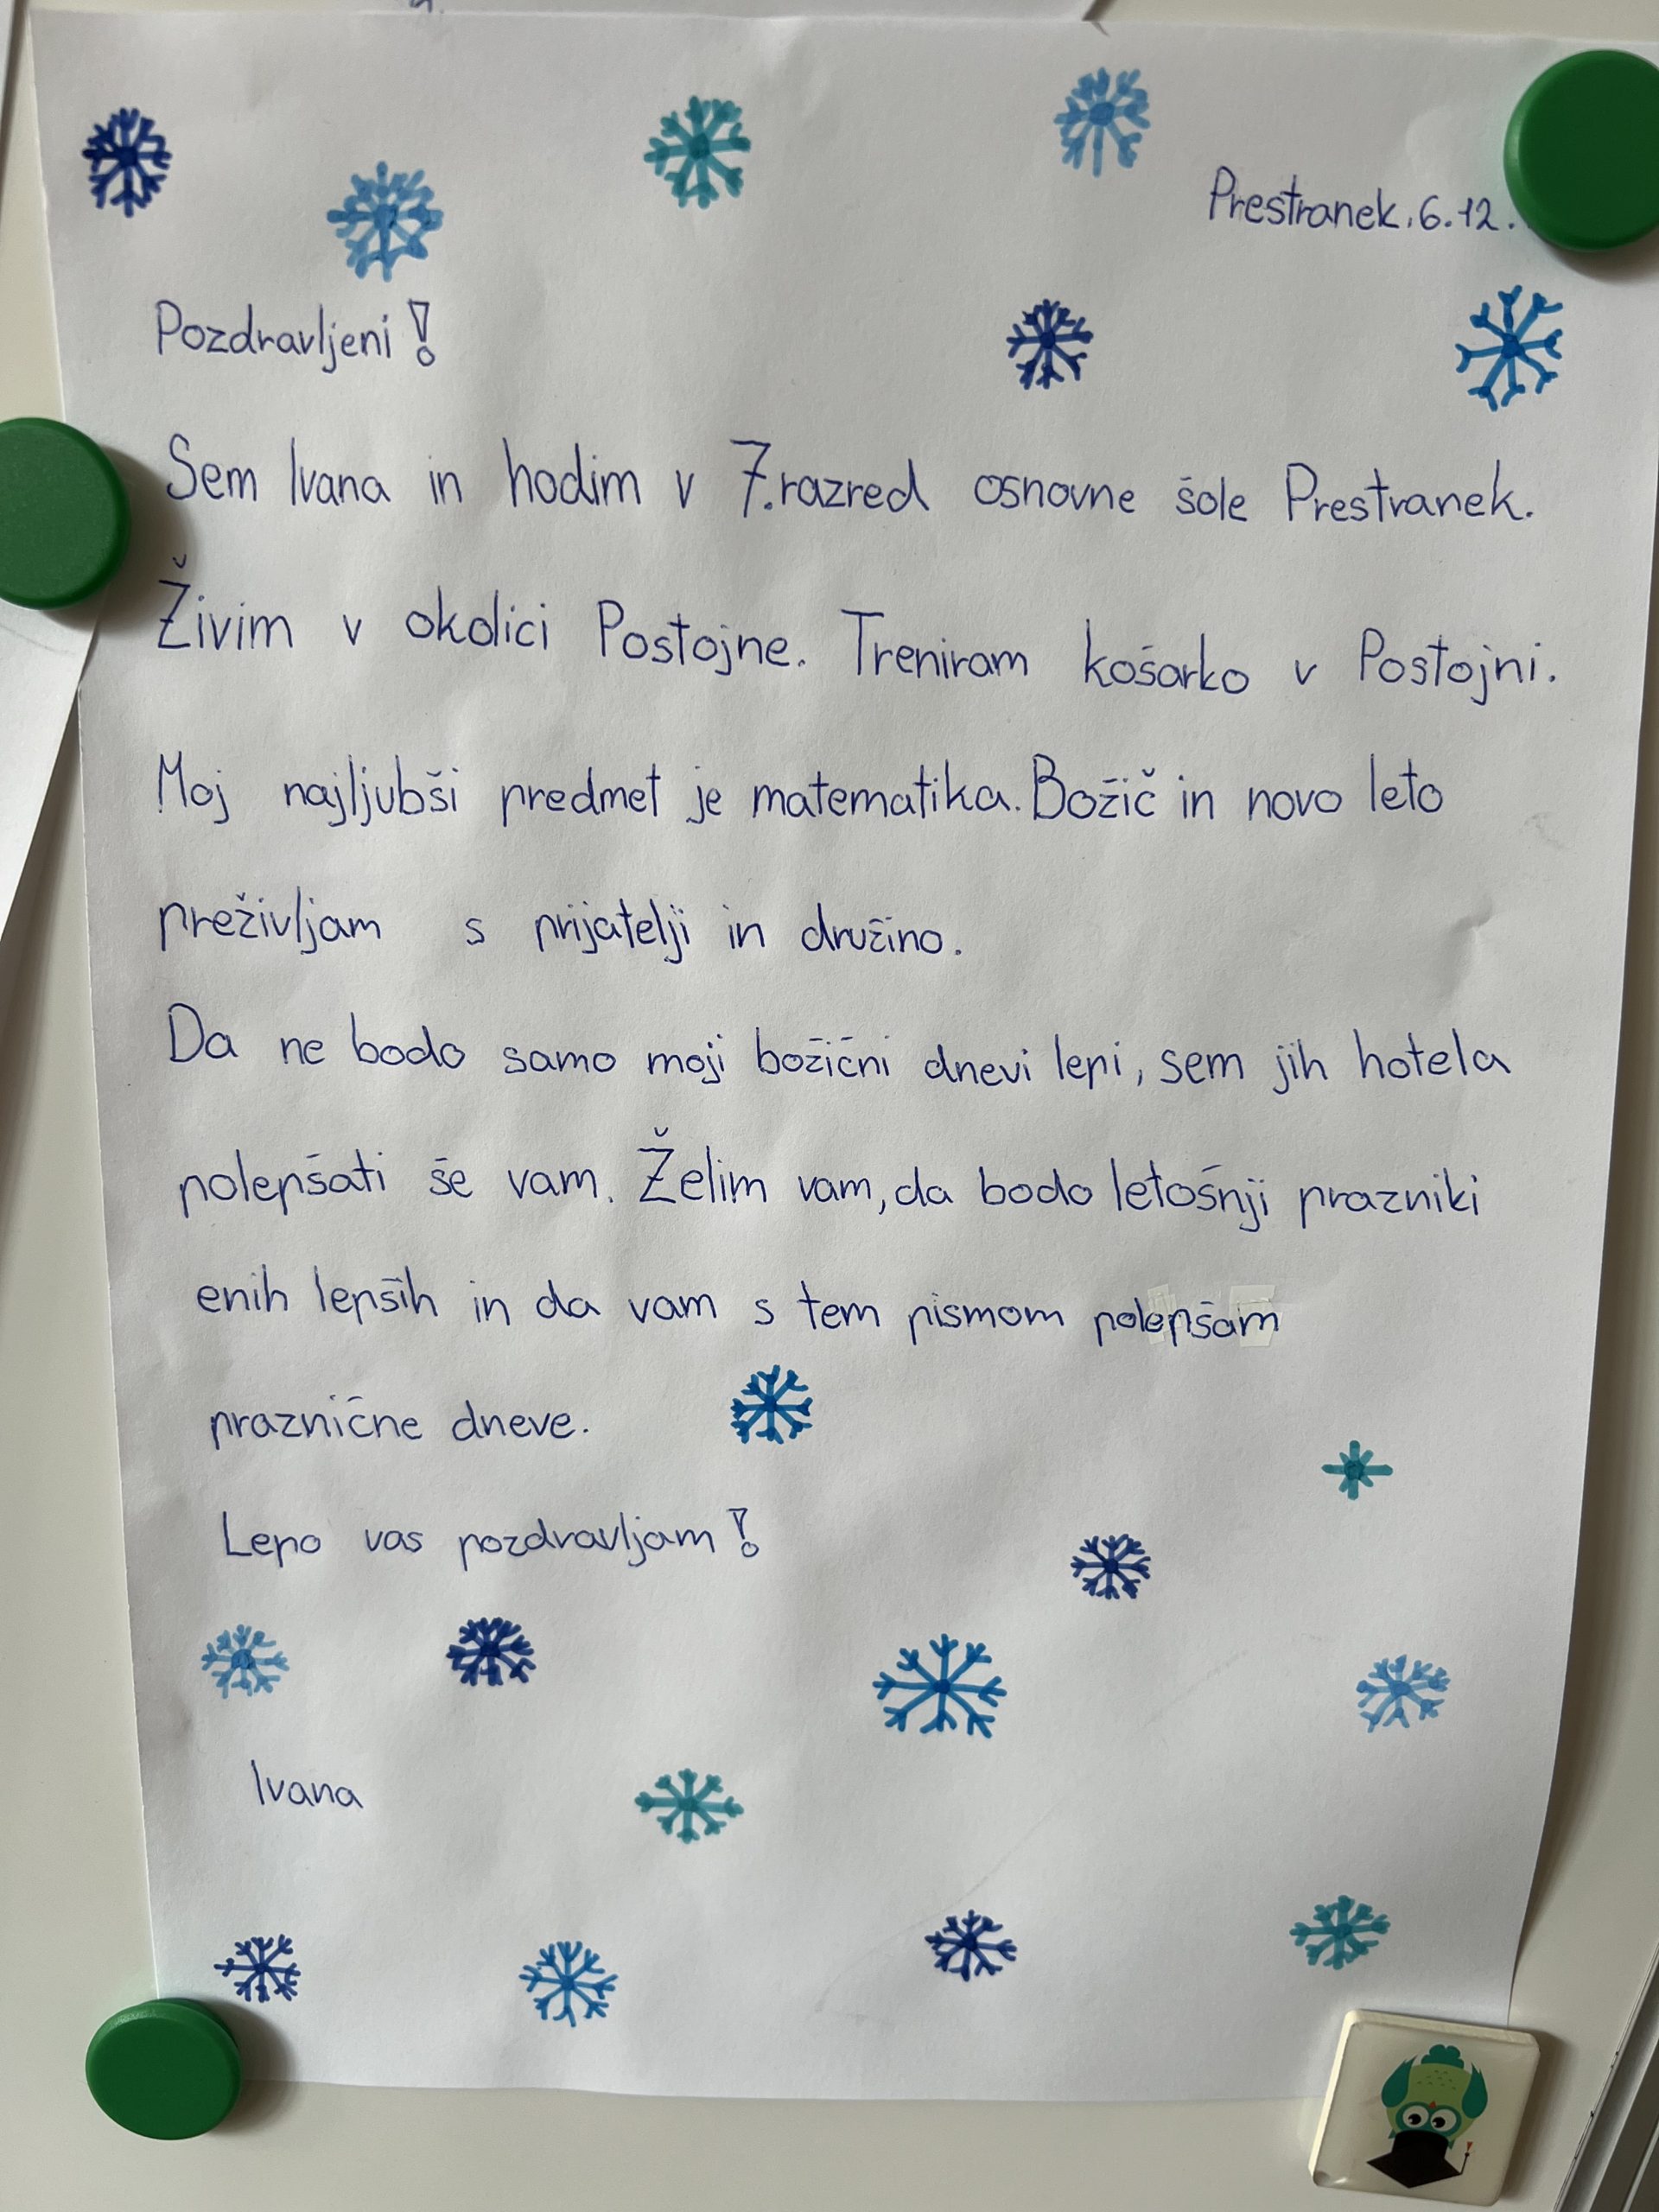 Prestranek, 6.12.
Pozdravljeni!
Sem Ivana in hodim v 7.razred osnovne šole Prestranek.
Živim v okolici Postojne. Treniram košarko v Postojni.
Moj najljubši predmet je matematika. Božič in novo leto
preživljam s prijatelji in družino.
Da ne bodo samo moji božični dnevi lepi, sem jih hotela
polepšati še vam. Želim vam, da bodo letošnji prazniki
enih lepših in da vam s tem pismom polepšam
praznične dneve.
Lepo vas pozdravljam!
Ivana